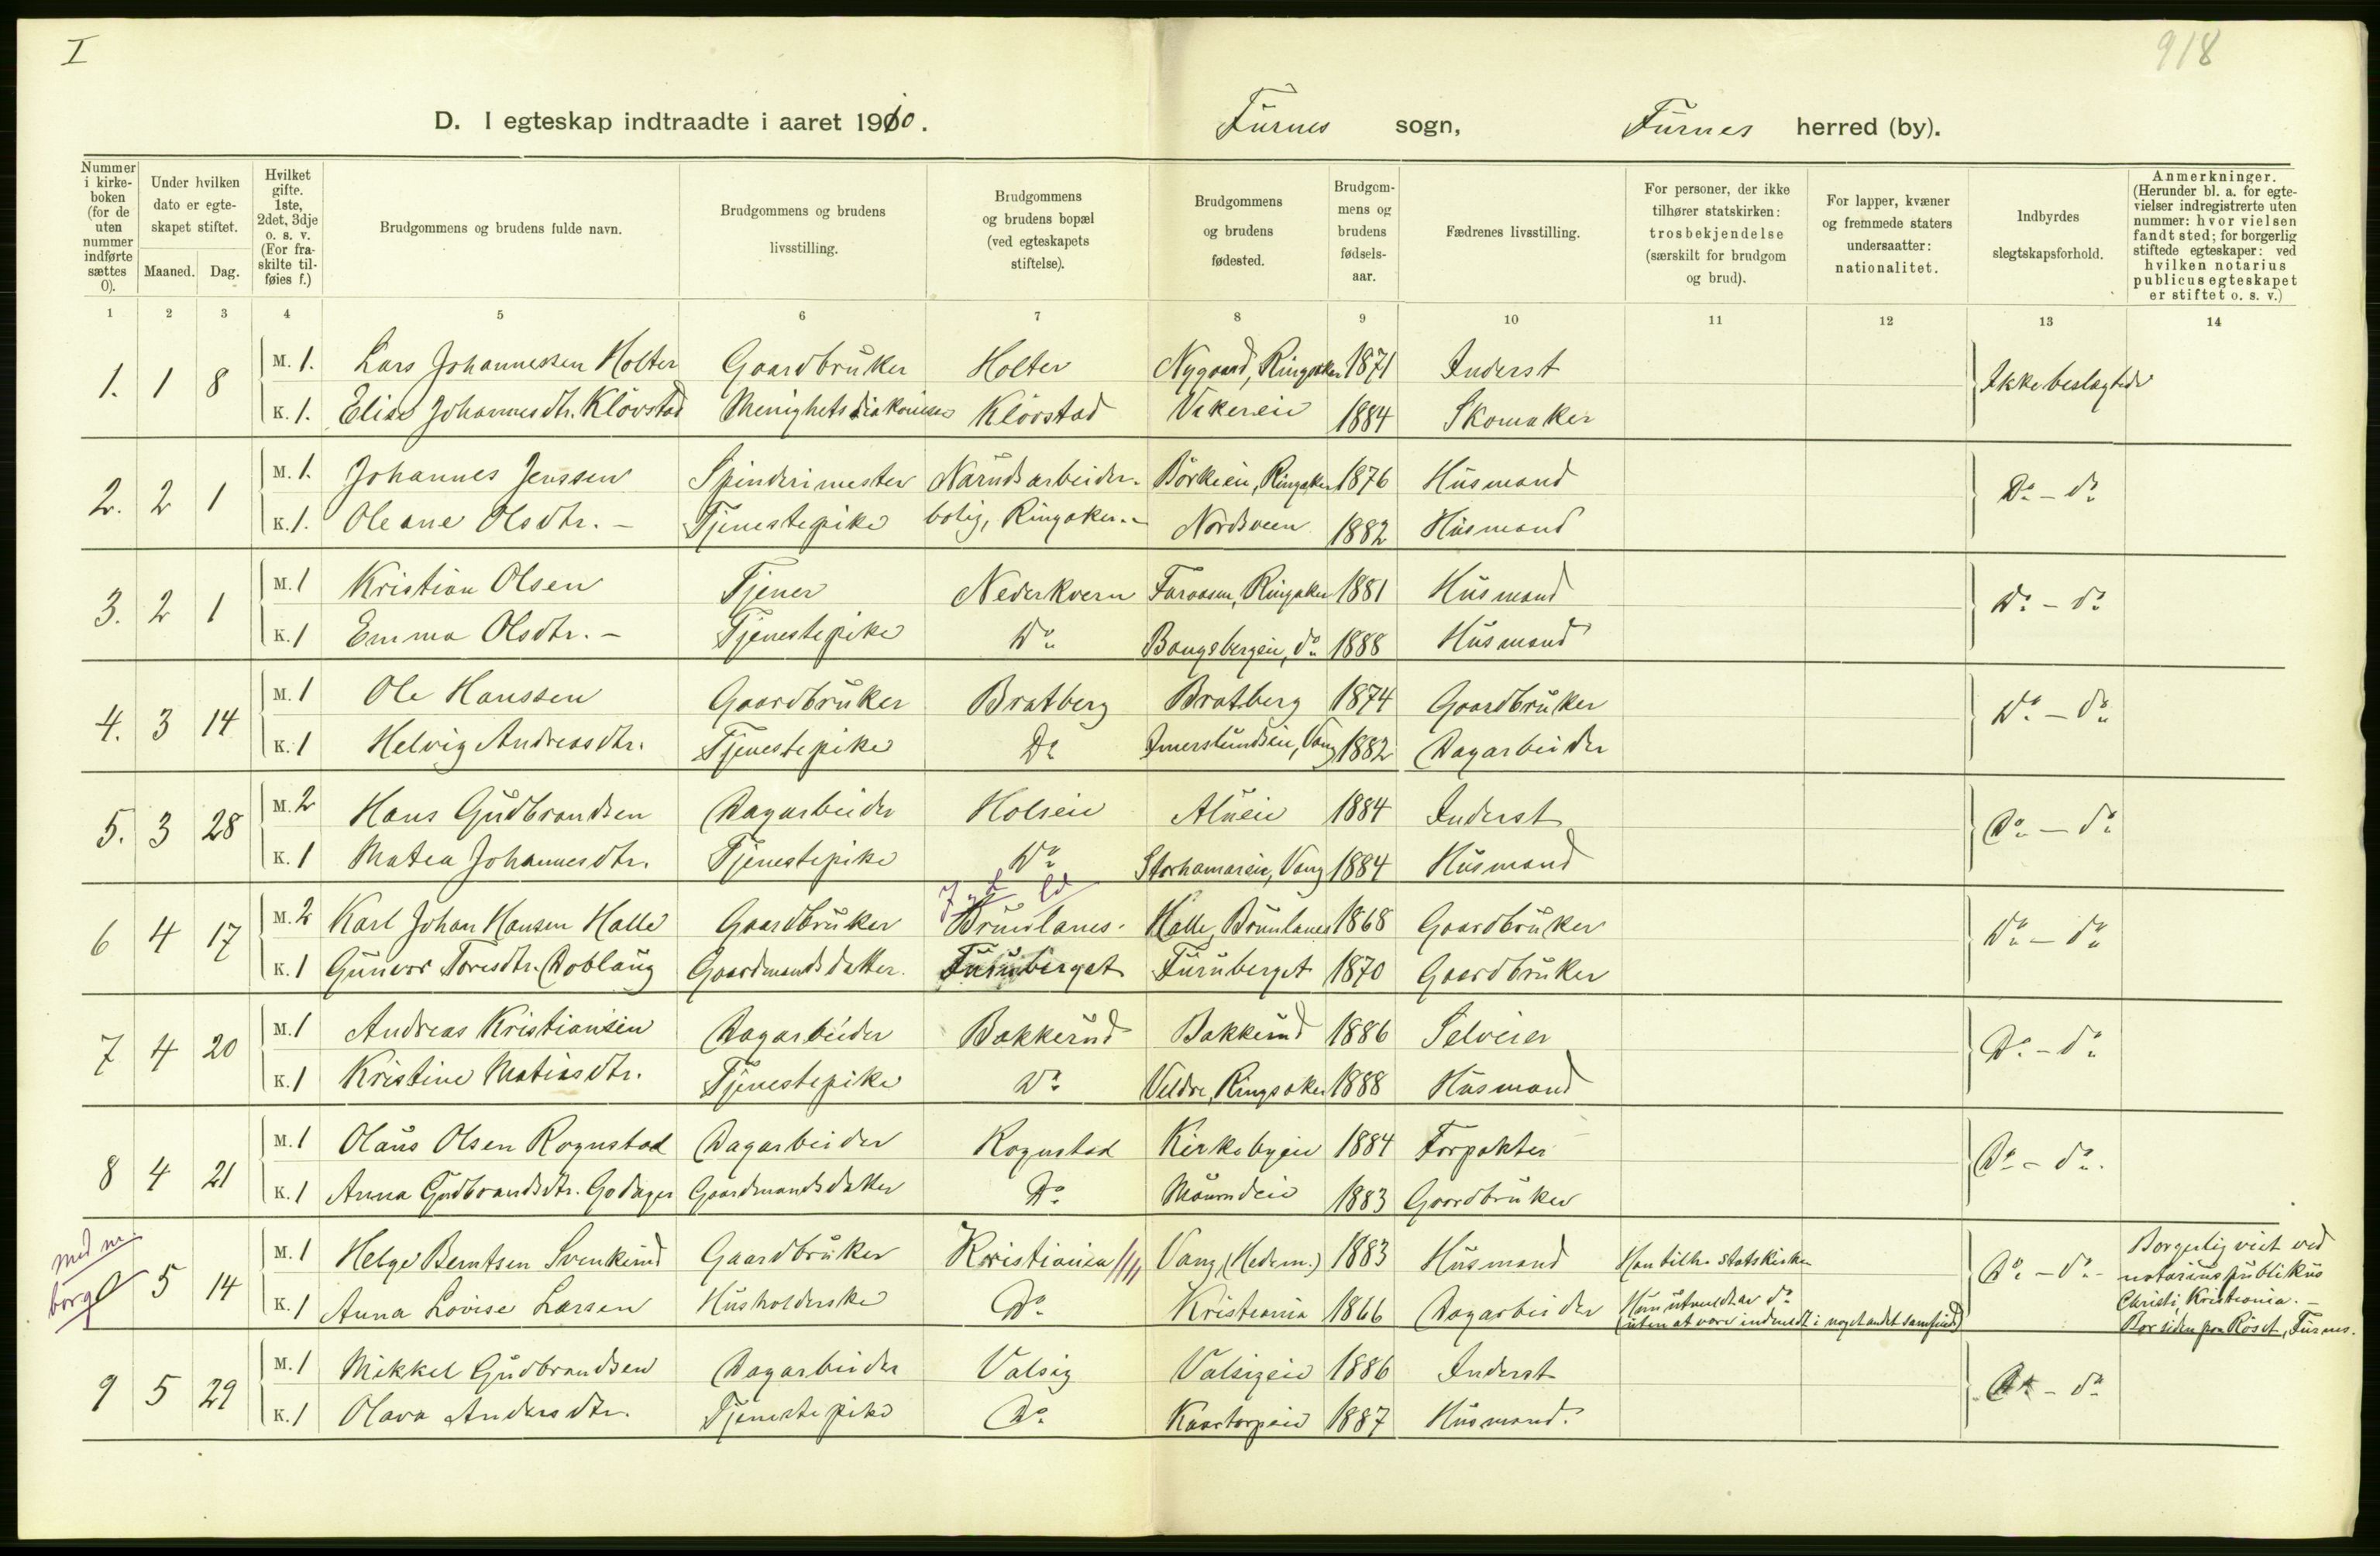 I
918
D. I egteskap indtraadte i aaret 1910.
Furnes sogn, Furnes herred (by).
Nummer i kirke-boken (for de uten nummer indførte sættes 0).
Under hvilken dato er egte-skapet stiftet.
Maaned. Dag.
Hvilket gifte. 1ste, 2det, 3dje o. s. v. (For fra-skilte til-føies f.)
Brudgommens og brudens fulde navn.
Brudgommens og brudens livsstilling.
Brudgommens og brudens bopæl (ved egteskapets stiftelse).
Brudgommens og brudens fødested.
Brudgom-mens og brudens fødsels-aar.
Fædrenes livsstilling.
For personer, der ikke tilhører statskirken: trosbekjendelse (særskilt for brudgom og brud).
For lapper, kvæner og fremmede staters undersaatter: nationalitet.
Indbyrdes slegtskapsforhold.
Anmerkninger. (Herunder bl. a. for egte-vielser indregistrerte uten nummer: hvor vielsen fandt sted; for borgerlig stiftede egteskaper: ved hvilken notarius publicus egteskapet er stiftet o. s. v.)
1 2 3 4 5 6 7 8 9 10 11 12 13 14
1. 1 8 M. 1. Lars Johannessen Holter Gaardbruker Holter Nygaard, Ringsaker 1871 Inderst Ikke beslegtede
K. 1. Elise Johannesdtr. Kløvstad Menighetsdiakonisse Kløvstad Vikereie 1884 Skomaker
2. 2 1 M. 1. Johannes Jenssen Spinderimester Narudsarbeider- Børkeeie, Ringsaker 1876 Husmand Do - do
K. 1. Oleane Olsdtr. - Tjenestepike bolig, Ringsaker. - Nordsveen 1882 Husmand
3. 2 1 M. 1 Kristian Olsen Tjener Nederkvern Faraasen, Ringsaker 1881 Husmand Do - do
K. 1 Emma Olsdtr. - Tjenestepike Do Bangsbergeie, do 1888 Husmand
4. 3 14 M. 1 Ole Hanssen Gaardbruker Bratberg Bratberg 1874 Gaardbruker Do - do
K. 1 Helvig Andreasdtr. Tjenestepike Do Imerslundeie, Vang 1882 Dagarbeider
5. 3 28 M. 2 Hans Gudbrandsen Dagarbeider Holseie Alueie 1884 Inderst Do - do
K. 1 Matea Johannesdtr. Tjenestepike Do Storhamareie, Vang 1884 Husmand
6 4 17 M. 2 Karl Johan Hansen Halle Gaardbruker Brunlanes. Halle, Brunlanes 1868 Gaardbruker Do - do
K. 1 Gunvor Toresdtr. Doblaug Gaardmandsdatter. Furuberget Furuberget 1870 Gaardbruker
7 4 20 M. 1 Andreas Kristiansen Dagarbeider Bakkerud Bakkerud 1886 Selveier Do - do
K. 1 Kristine Matiasdtr. Tjenestepike Do Veldre, Ringsaker 1888 Husmand
8 4 21 M. 1 Olaus Olsen Rognstad Dagarbeider Rognstad Kirkebyeie 1884 Forpakter Do - do.
K. 1 Anna Gudbrandsdtr. Godager Gaardmandsdatter Do 1883 Gaardbruker
med nr.
borgl 5 14 M. 1 Helge Berntsen Svenkerud Gaardbruker Kristiania Vang (Hedem.) 1883 Husmand Han tilh. statskirken Do - do - Borgerlig viet ved notarius publikus
K. 1 Anna Lovise Larsen Husholderske Do Kristiania 1866 Dagarbeider Hun utmeldt av do (uten at være indmeldt i noget andet samfund) Christi, Kristiania. -
Bor siden paa Røset, Furnes.
9 5 29 M. 1 Mikkel Gudbrandsen Dagarbeider Valsig Valsigeie 1886 Inderst Do - do
K. 1 Olava Andersdtr. Tjenestepike Do Kaastorpeie 1887 Husmand.